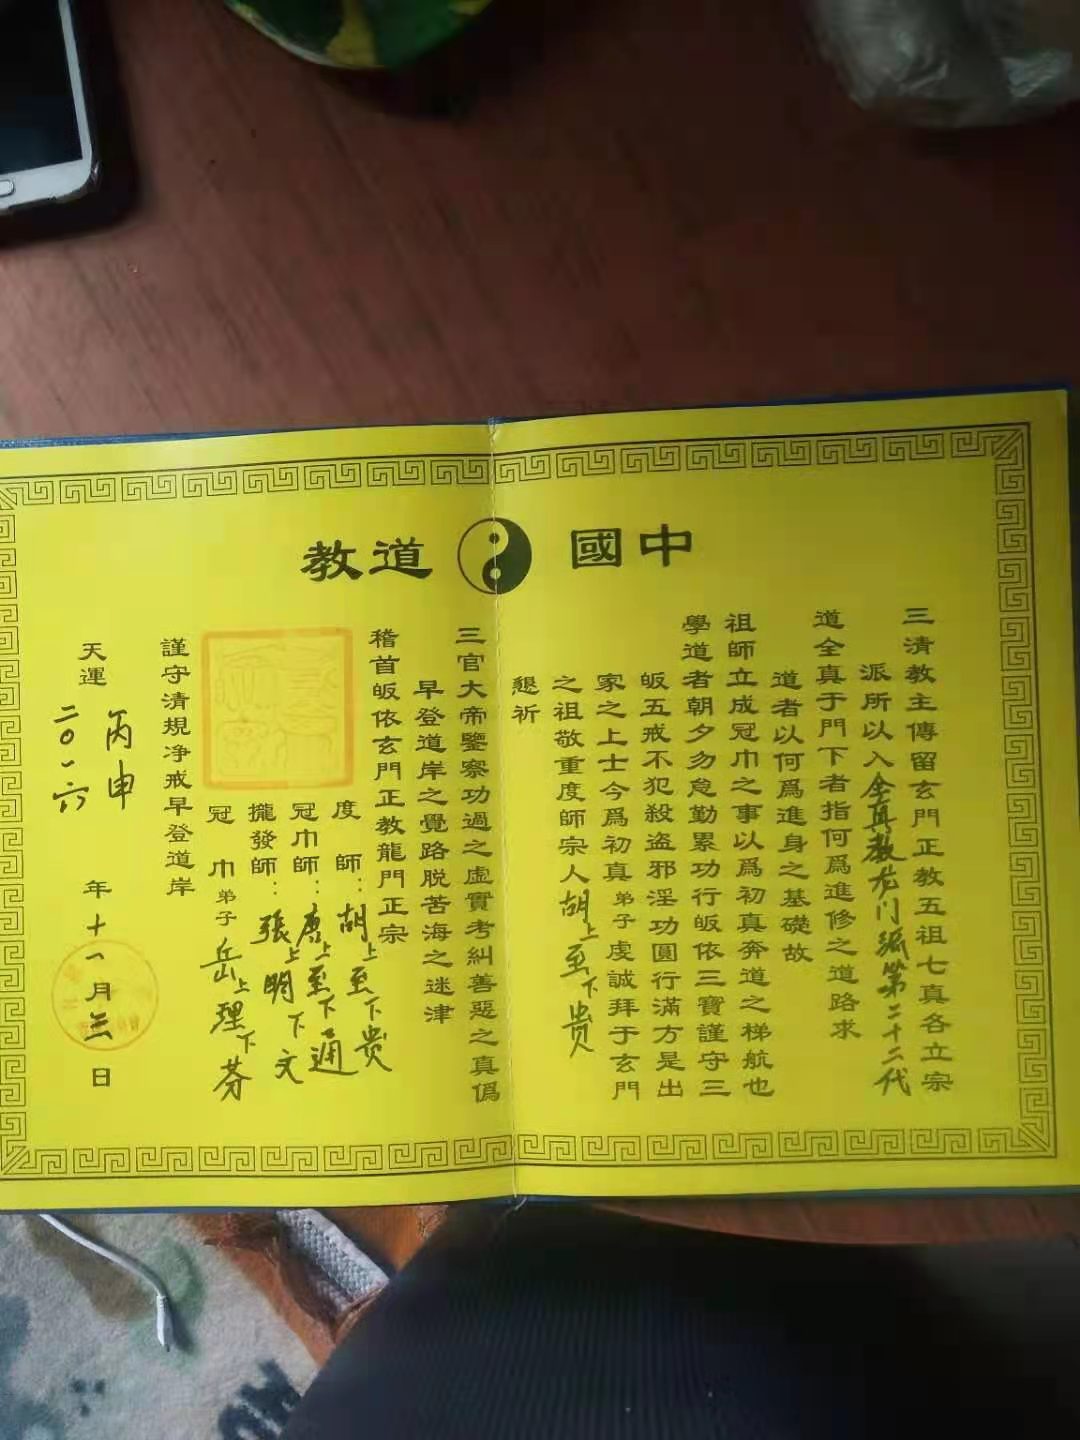 中國道教
三清教主傳留玄門正教五祖七真各立宗
派所以入全真教龙门派第二十二代
道全真于門下者指何爲進修之道路求
道者以何爲進身之基礎故
祖師立成冠巾之事以爲初真奔道之梯航也
學道者朝夕勿怠勤累功行皈依三寶謹守三
皈五戒不犯殺盗邪淫功圓行滿方是出
家之上士今爲初真弟子虔誠拜于玄門
之祖敬重度師宗人胡上至下贵
懇祈
三官大帝鑒察功過之虛實考糾善惡之真僞
早登道岸之覺路脱苦海之迷津
稽首皈依玄門正教龍門正宗
度師：胡上至下贵
冠巾師：唐上至下通
攏發師：張上明下文
冠巾弟子岳上理下芬
謹守清規净戒早登道岸
天運丙申年十一月三日
二〇一六